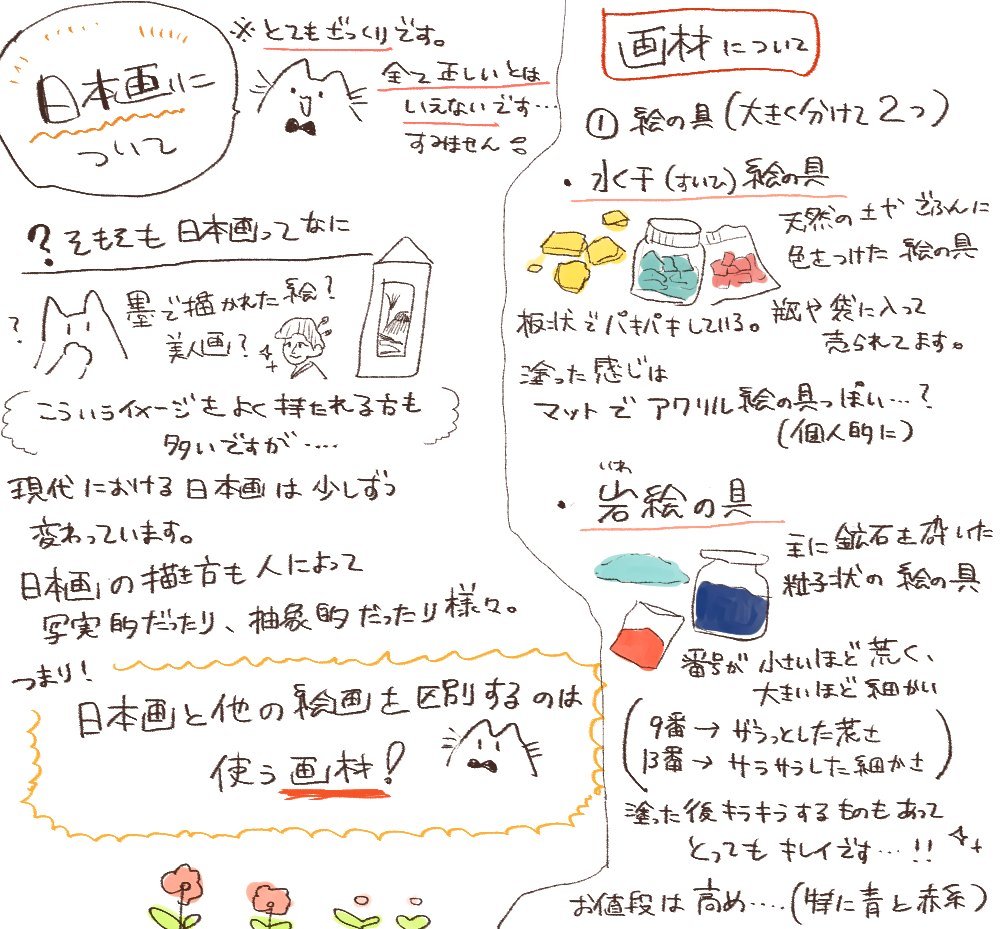 日本画に
ついて
※とてもざっくりです。
全て正しいとは
いえないです…
すみません
？そもそも 日本画ってなに
？
墨で描かれた絵？
美人画？
こういうイメージをよく持たれる方も
多いですが‥‥
現代における日本画は少しずつ
変わっています。
日本画の描き方も人によって
写実的だったり、抽象的だったり様々。
つまり！
日本画と他の絵画を区別するのは
使う画材！
画材について
① 絵の具(大きく分けて２つ)
・水干(すいひ)絵の具
天然の土やごふんに
色をつけた絵の具
板状でパキパキしている。
瓶や袋に入って
売られてます。
塗った感じは
マットでアクリル絵の具っぽい…？
(個人的に)
いわ
・岩絵の具
主に鉱石を砕いた
粒子状の絵の具
番号が小さいほど荒く、
大きいほど細かい
9番→ザラっとした荒さ
13番→サラサラした細かさ
塗った後キラキラするものもあって
とってもキレイです…!!
お値段は高め‥‥(特に青と赤系)